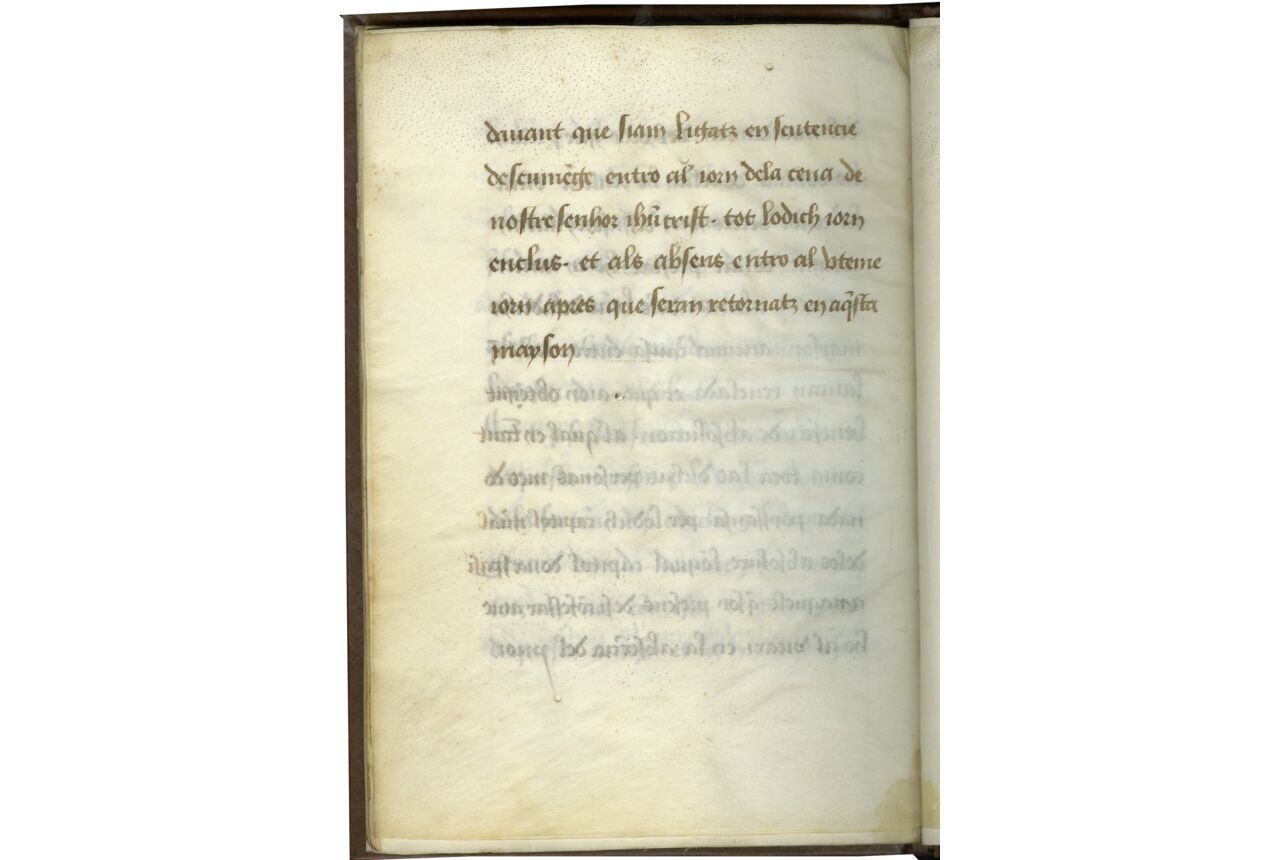 dauant que siam ligatz en sentencie
descumēge entro al iorn dela cena de
nostre senhor ihū crist · tot lodich iorn
enclus · et als absens entro al vteme
iorn apres que seran retornatz en aq̄sta
mayson